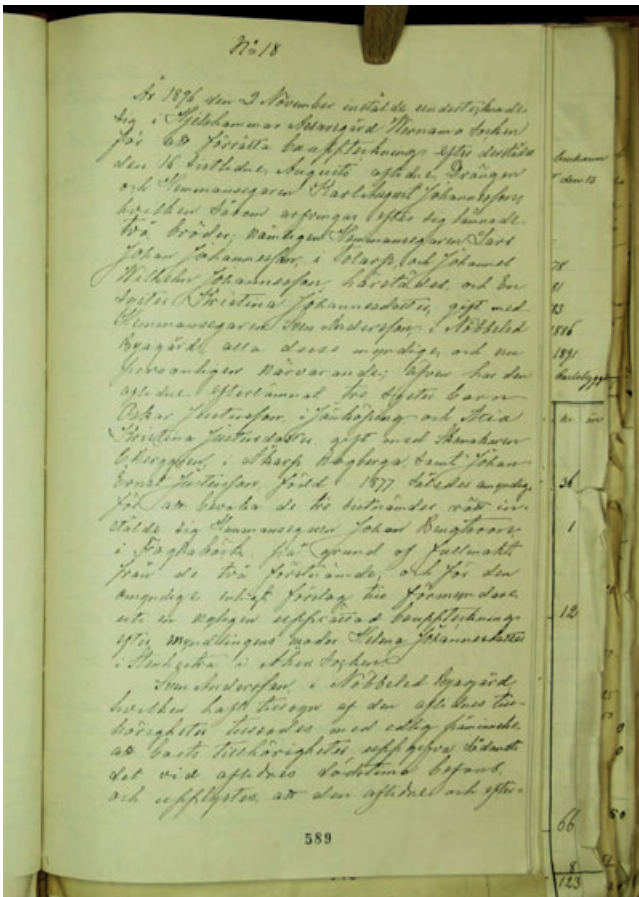 No 18
År 1896 den 2 November instälde undertecknade
sig i Hjelshammar Wernamo Socken
för att förrätta bouppteckning efter derstädes
den 16 sistlidne Augusti aflidne Drängen
och Hemmansegaren Karl August Johannesson,
hvilken såsom arfvingar efter sig lämnade
två bröder, nämligen Hemmansegaren Lars
Johan Johannesson, i Tolarp, och Johannes
Wilhelm Johannesson, härstädes, och En
syster Kristina Johannesdotter, gift med
Hemmansegaren Sven Andersson i Nöbbeled
Byagård, alla desse myndige, och nu
personligen närvarande; äfven har den
aflidne efterlämnat tre syster barn
Oskar Justusson, i Jönköping och
Kristina Justusdotter, gift med
i Hagberga, samt Johan
Ernst Justusson, född 1877 således omyndig
för att bevaka de tre sistnämdes rätt in-
stälde sig Hemmansegaren Johan Bengtsson
i på grund af fullmakt
från de två förstnämde, och för den
omyndige enligt förslag till förmyndare
uti en nyligen upprättad bouppteckning
efter myndlingens moder Helena Johannesdotter
i i Åkers Socken.
Sven Andersson i Nöbbeled Byagård
hvilken haft tillsyn af den aflidnes till-
hörigheter tillsades med edlig påminnelse
att boets tillhörigheter uppgifva sådant
det vid aflidnes dödstimma befans,
och upplystes, att den aflidne och efter-
589
den 13
78
91
93
1886
1891
kr öre
36
1
12
66
8
123